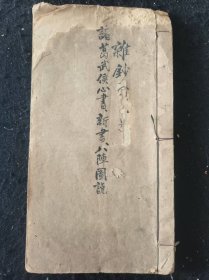 雜鈔
諸葛武侯心書、新書、八陣圖說